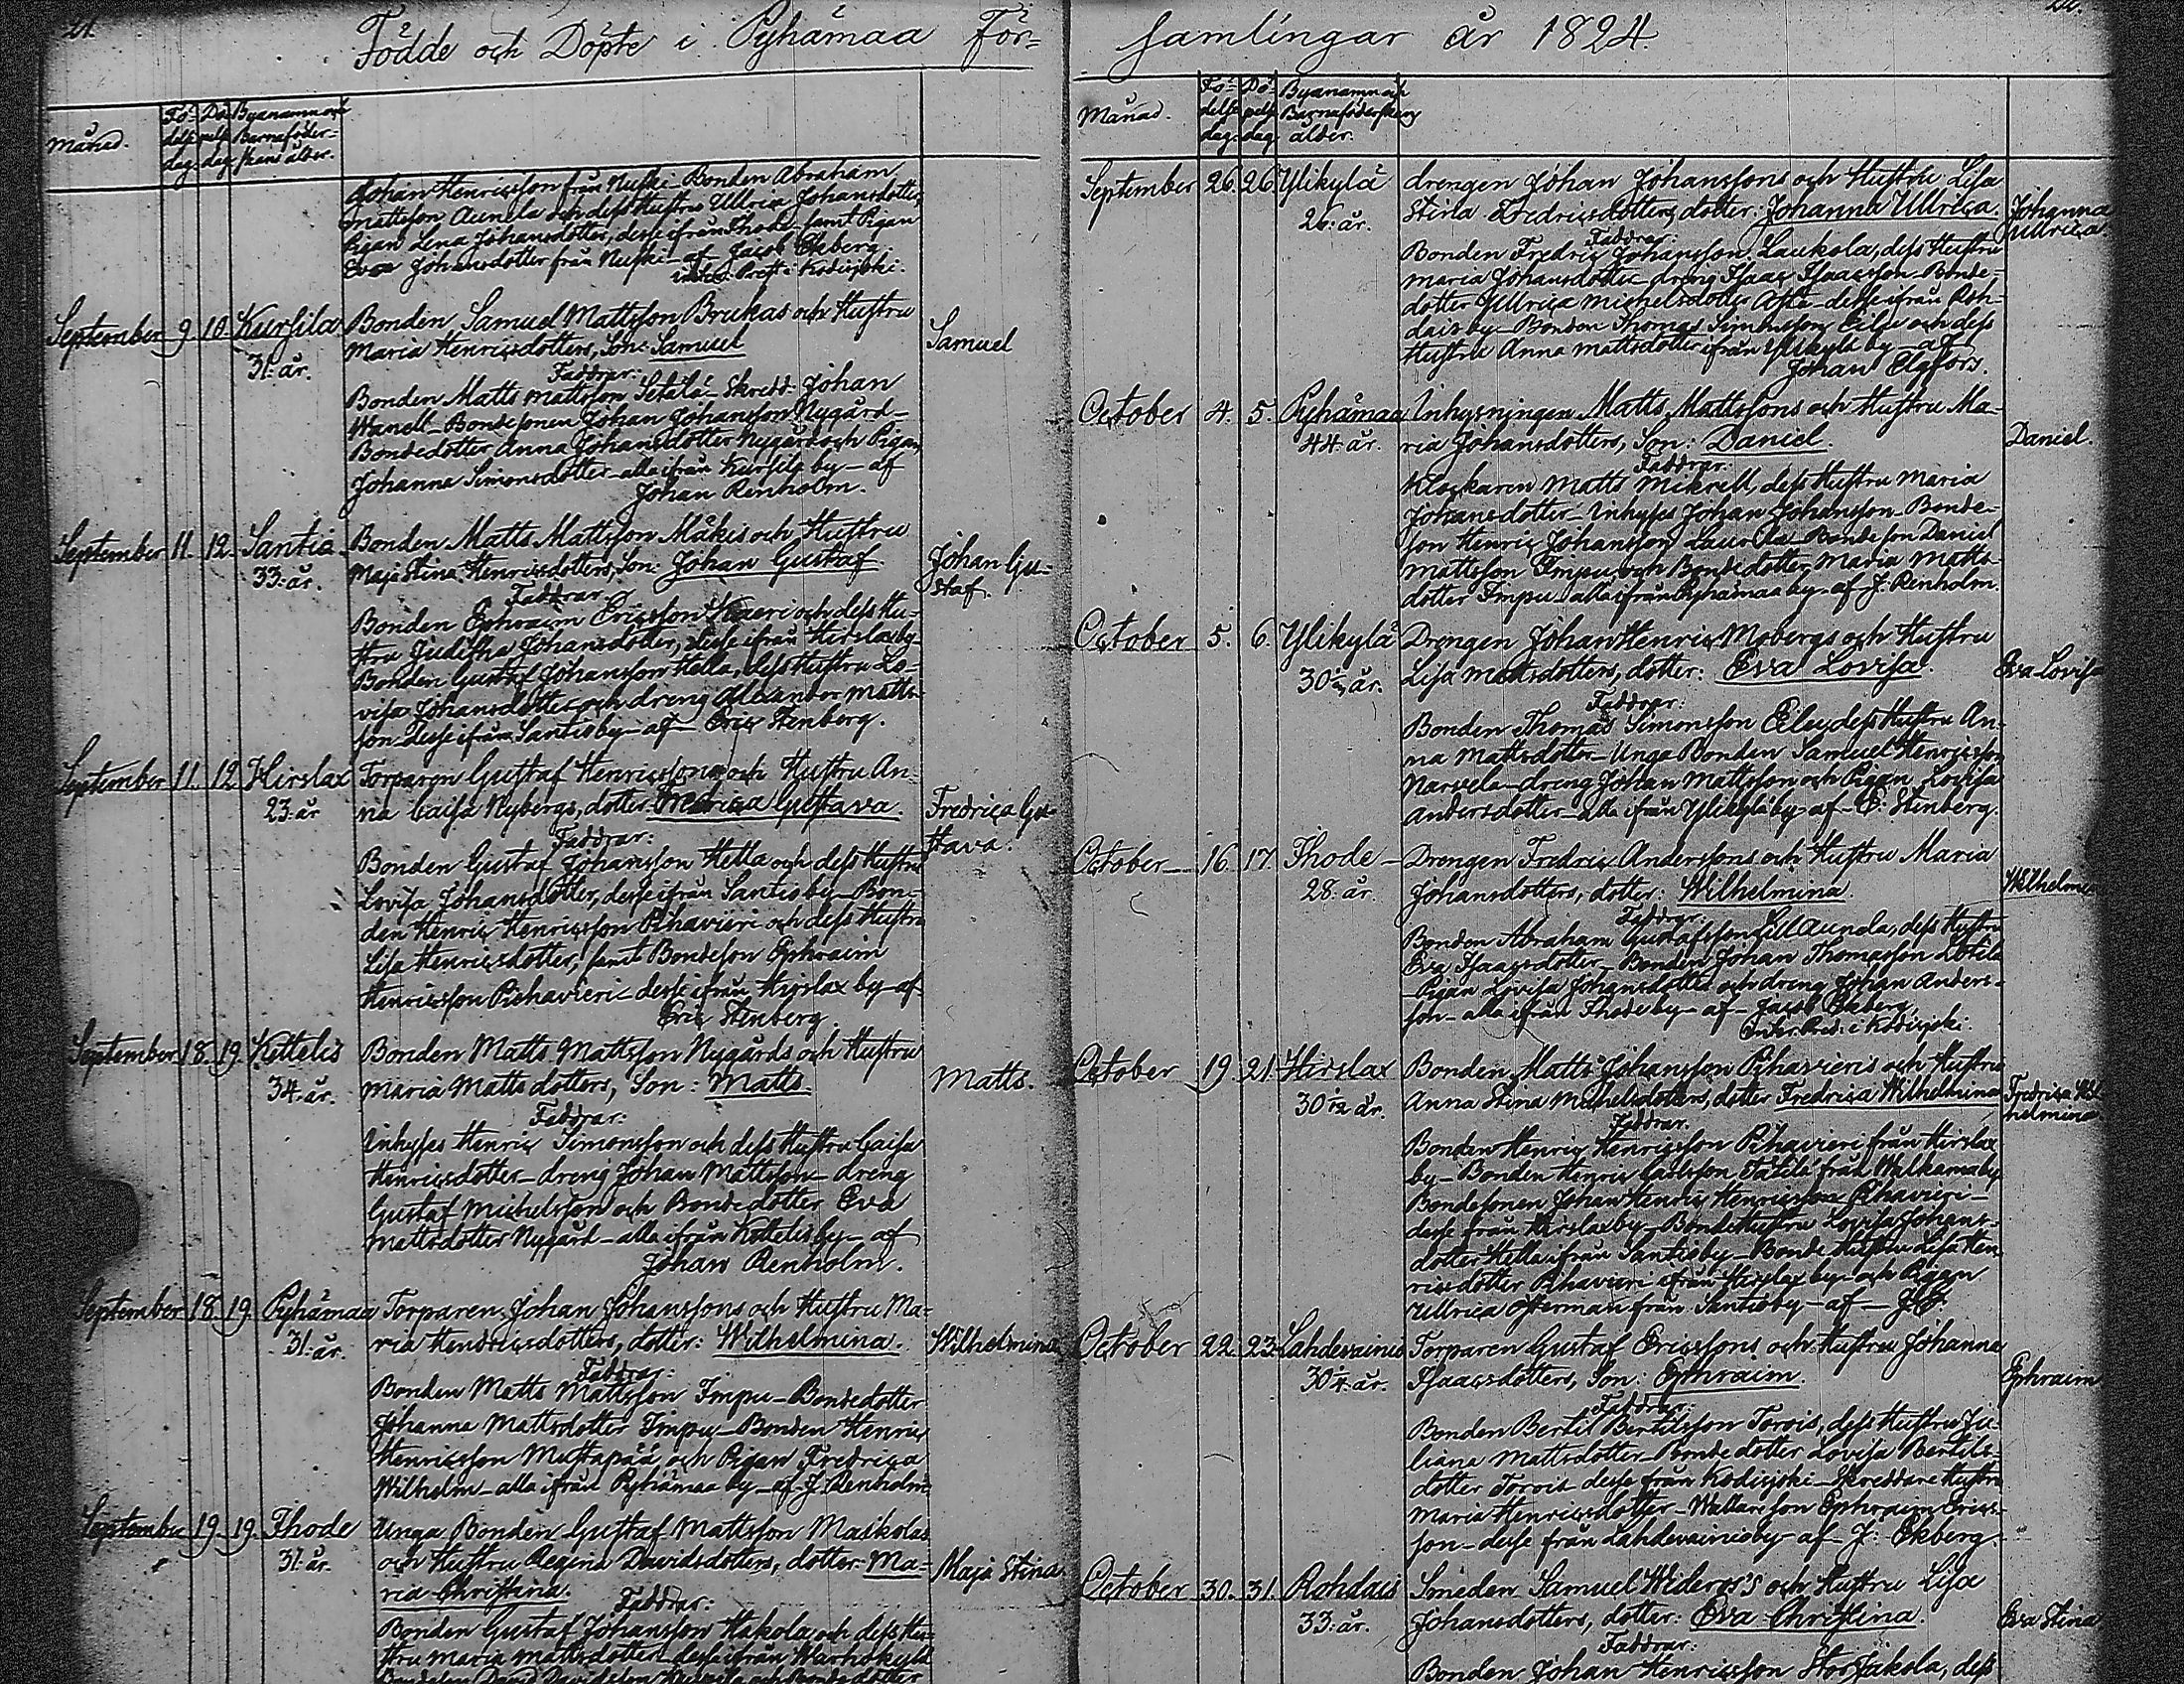 21.
Födde och Döpte i Pyhämaa För=
Månad.
Fö- delse dag. Dö- pelse dag. Byanamn och Barnaföder= skans ålder.
Johan Henricsson från Nuski - Bonden Abraham
Mattsson Aunela och dess Hustru Ullrica Johansdotter,
Pigan Lena Johansdotter, desse ifrån Thode - samt Pigan
Eva Johansdotter från Nuski - af Jacob Ekberg
Prest i Kodisjoki.
September 9. 10. Kursila Bonden Samuel Mattsson Brukas och Hustru
31. år. Maria Henricsdotters, Son: Samuel Samuel
Faddrar:
Bonden Matts Mattsson Setälä - Skredd. Johan
Wandell - Bondesonen Johan Johansson Nygård -
Bondedotter Anna Johansdotter Nygård och Pigan
Johanna Simonsdotter - alla ifrån Kursila by - af
Johan Renholm.
September 11. 12. Santio Bonden Matts Mattsson Mäkis och Hustru
33. år. Maja Stina Henricsdotters, Son: Johan Gustaf Johan Gu- staf.
Faddrar
Bonden Ephraim Ericsson Skaeri och dess Hu-
stru Juditha Johansdotter, desse ifrån Hirslax by -
Bonden Gustaf Johansson Hella, dess Hustru Lo-
visa Johansdotter och dreng Alexander Matts-
son desse ifrån Santio by - af Eric Stenberg.
September 11. 12. Hirslax Torparen Gustaf Henricssons och Hustru An-
23. år na Caisa Nybergs, dotter Fredrica Gustava. Fredrica Gu- stava.
Faddrar:
Bonden Gustaf Johansson Hella och dess Hustru
Lovisa Johansdotter, desse ifrån Santio by - Bon-
den Henric Henricsson Pihavieri och dess Hustru
Lisa Henricsdotter, samt Bondeson Ephraim
Henricsson Pichavieri - desse ifrån Hirslax by - af
Eric Stenberg
September 18. 19. Kettelis Bonden Matts Mattsson Nygårds och Hustru
34. år. Maria Mattsdotters, Son: Matts. Matts.
Faddrar:
Inhyses Henric Simonsson och dess Hustru Caisa
Henricsdotter - dreng Johan Mattsson - dreng
Gustaf Michelsson och Bondedotter Eva
Mattsdotter Nygård - alla ifrån Kettelis by - af
Johan Renholm.
September 18. 19. Pyhämaa Torparen Johan Johanssons och Hustru Ma-
31. år. ria Hendricsdotters, dotter: Wilhelmina. Wilhelmina
Faddrar:
Bonden Matts Mattsson Impu - Bondedotter
Johanna Mattsdotter Impu - Bonden Henric
Henricsson Mustapää, och Pigan Fredrica
Wilhelm - alla ifrån Pyhämaa by - af J. Renholm.
September 19. 19. Thode Unga Bonden Gustaf Mattsson Maikolas
31. år. och Hustru Regina Davidsdotters, dotter: Ma- Maja Stina.
ria Christina. Faddrar:
Bonden Gustaf Johansson Hakola och dess Hu-
stru Maria Mattsdotter desse ifrån Warhokylä
samlingar år 1824.
Månad.
Fö- delse dag. Dö- pelse dag. Byanamn och Barnaföderskans ålder.
September 26. 26. Ylikylä drengen Johan Johanssons och Hustru Lisa
26. år. Stina Fredricsdotters, dotter: Johanna Ullrica. Johanna Ullrica
Faddrar:
Bonden Fredric Johansson Laukola, dess Hustru
Maria Johansdotter - dreng Isaac Isaacsson - Bonde-
dotter Ullrica Michelsdotter - desse ifrån Roh-
dais by - Bonden Thomas Simonsson Eile och dess
Hustru Anna Mattsdotter ifrån Ylikylä by - af
Johan Elgfors.
October 4. 5. Pyhämaa Inhysningen Matts Mattssons och Hustru Ma-
44. år. ria Johansdotters, Son: Daniel. Daniel.
Faddrar:
Klockaren Matts Mikrell dess Hustru Maria
Johansdotter - Inhyses Johan Johansson - Bonde-
son Henric Johansson Laurila - Bondeson Daniel
Mattsson Impu, och Bondedotter Maria Matts-
dotter Impu - alla ifrån Pyhämaa by - af J. Renholm.
October 5. 6. Ylikylä Drengen Johan Henric Mobergs och Hustru
30 1/2 år. Lisa Mattsdotters, dotter: Eva Lovisa. Eva Lovisa
Faddrar:
Bonden Thomas Simonsson Eile, dess Hustru An-
na Mattsdotter - Unga Bonden Samuel Henricsson
Narvela - dreng Johan Mattsson och Pigan Lovisa
Andersdotter - alla ifrån Ylikylä by - af E. Stenberg.
October 16. 17. Thode - Drengen Fredric Anderssons och Hustru Maria
28. år. Johansdotters, dotter: Wilhelmina. Wilhelmina
Faddrar:
Bonden Abraham Gustafsson Lill Aunela, dess Hustru
Eva Isaacsdotter - Bonden Johan Thomasson Lotila
- Pigan Lovisa Johansdotter och dreng Johan Anders-
son - alla ifrån Thode by - af - Jacob Ekberg,
Pred. i Kodisjoki.
October 19. 21. Hirslax Bonden Matts Johansson Pihavieris och Hustru
30 1/12 år. Anna Stina Michelsdotters, dotter Fredrica Wilhelmina Fredrica Wil- helmina
Faddrar.
Bonden Henric Henricsson Pihavieri från Hirslax
by - Bonden Henric Carlsson från Welkama by
Bondesonen Johan Henric Henricsson Pihavieri -
desse från Hirslax by - Bonde Hustru Lovisa Johans-
dotter Hella ifrån Santio by - Bonde Hustru Lisa Hen-
ricsdotter Pihavieri ifrån Hirslax by - och Pigan
Ullrica Österman från Santio by - af - J. E.
October 22. 23. Lahdevainio Torparen Gustaf Ericssons och Hustru Johanna
30 1/4. år. Isaacsdotters, Son: Ephraim. Ephraim
Faddrar:
Bonden Bertil Bertilsson Torvis, dess Hustru Ju-
liana Mattsdotter - Bondedotter Lovisa Bertils-
dotter Torvis desse från Kodisjoki - Skreddare Hustru
Maria Henricsdotter - Wallareson Ephraim Erics-
son - desse från Lahdevainio by - af J. Ekberg.
October 30. 31. Rohdais Smeden Samuel Wideros's och Hustru Lisa
33. år. Johansdotters, dotter: Eva Christina. Eva Stina
Faddrar:
Bonden Johan Henricsson Storjakola, dess